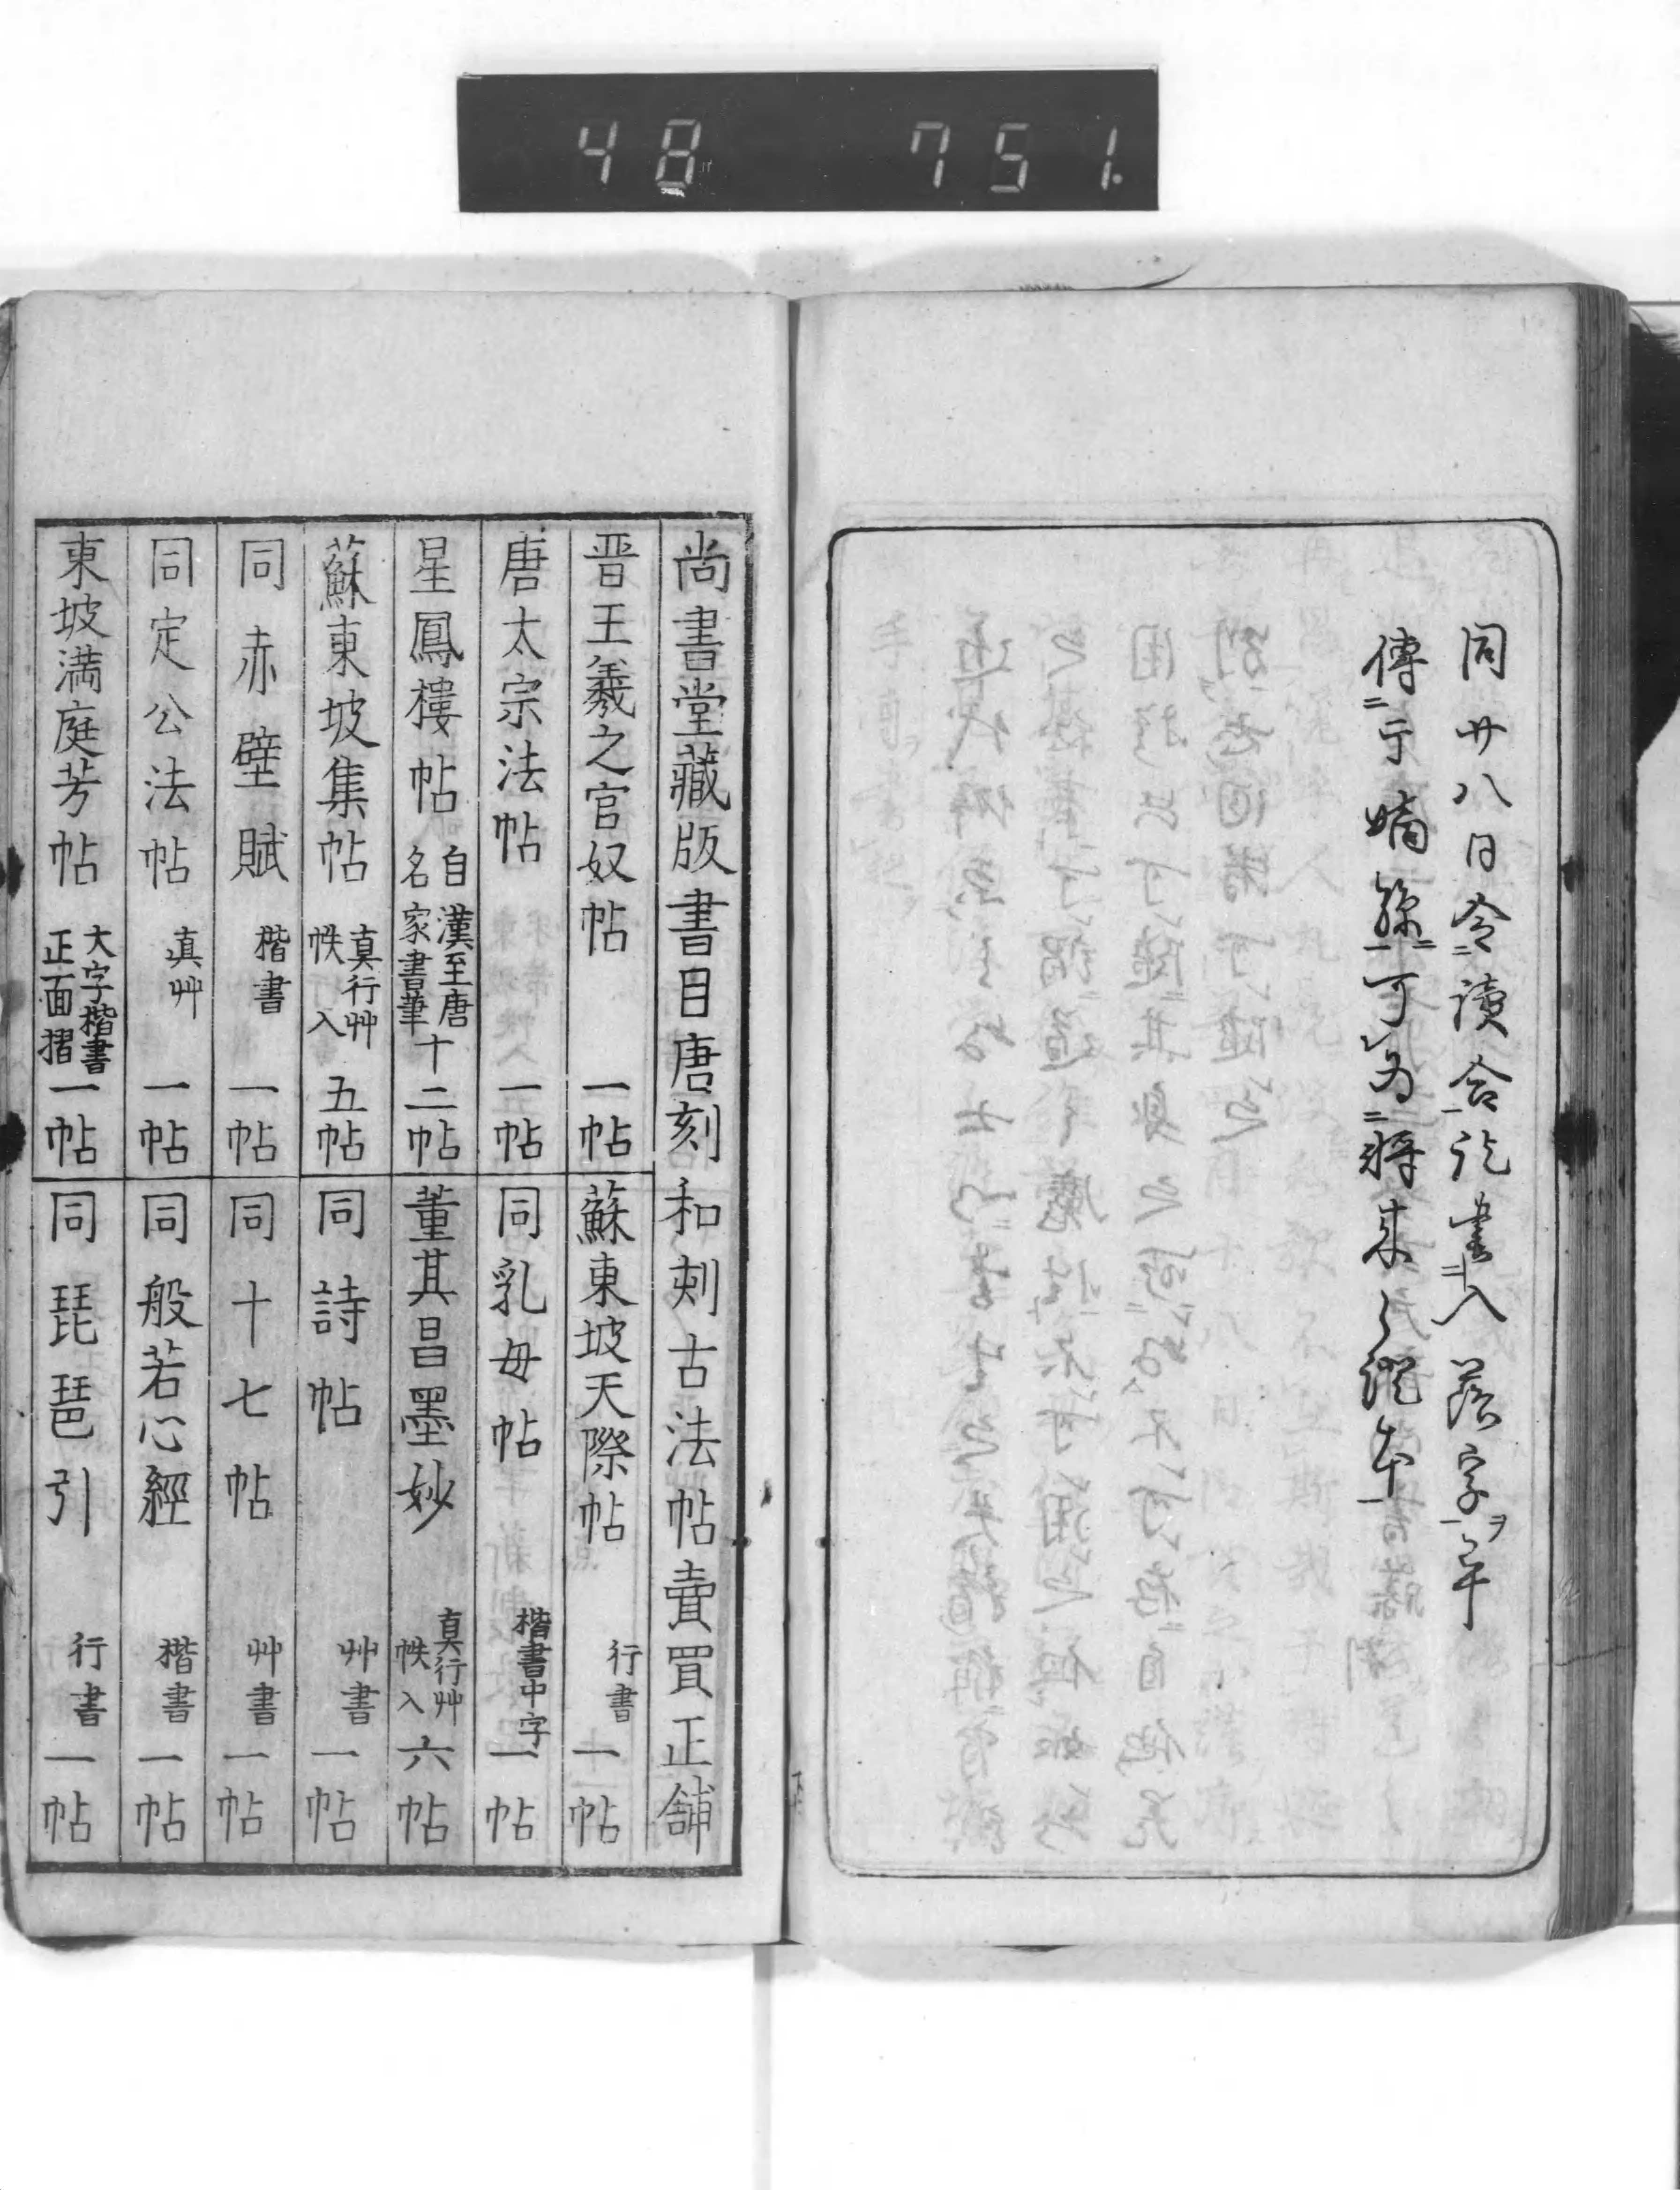 48 751.
同廿八日令讀合訖書入落字ヲ畢
傳于嫡孫可為将来之證本
尚書堂藏版書目唐刻和刻古法帖賣買正舗
晋王羲之官奴帖 一帖
蘇東坡天際帖 行書 一帖
唐太宗法帖 一帖
同乳母帖 楷書中字 一帖
星鳳樓帖 自漢至唐名家書筆 十二帖
董其昌墨妙 真行艸帙入 六帖
蘇東坡集帖 真行艸帙入 五帖
同詩帖 艸書 一帖
同赤壁賦 楷書 一帖
同十七帖 艸書 一帖
同定公法帖 真艸 一帖
同般若心經 楷書 一帖
東坡満庭芳帖 大字楷書正面摺 一帖
同琵琶引 行書 一帖